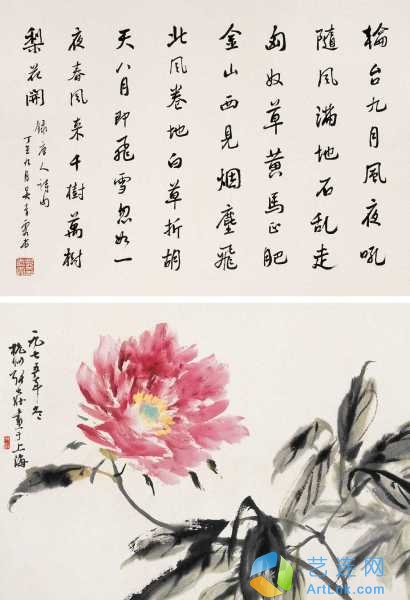 輪台九月風夜吼
隨風滿地石乱走
匈奴草黄馬正肥
金山西見烟塵飛
北風卷地白草折胡
天八月即飛雪忽如一
夜春風来千樹萬樹
梨花開
録唐人詩句
九月吴
一九七五年冬
杭州張大壮画于上海
ArtLnk.com